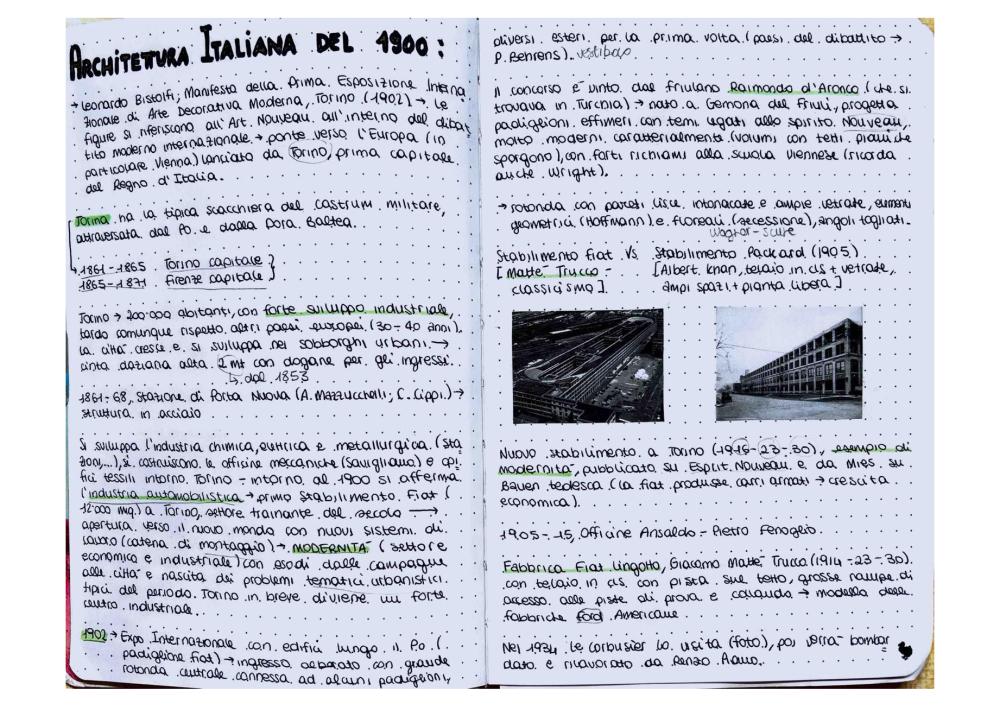 ARCHITETTURA ITALIANA DEL 1900:
→ Leonardo Bistolfi; Manifesto della Prima Esposizione Interna
zionale di Arte Decorativa Moderna, Torino (1902) → Le
figure si riferiscono all'Art Nouveau all'interno del dibat
tito moderno internazionale → ponte verso l'Europa (in
particolare Vienna) lanciato da Torino, prima capitale
del Regno d'Italia.
Torino ha la tipica scacchiera del castrum militare,
attraversata dal Po e dalla Dora Baltea.
1861-1865 Torino capitale
1865-1871 Firenze capitale
Torino → 200.000 abitanti, con forte sviluppo industriale,
tardo comunque rispetto altri paesi europei (30-40 anni).
La città cresce e si sviluppa nei sobborghi urbani →
cinta daziaria alta 2 mt con dogane per gli ingressi.
↳ dal 1853
1861-68, Stazione di Porta Nuova (A. Mazzucchelli; C. Ceppi) →
struttura in acciaio
Si sviluppa l'industria chimica, elettrica e metallurgica (sta
zioni,...), si costruiscono le officine meccaniche (Savigliano) e opi
fici tessili intorno Torino - intorno al 1900 si afferma
l'industria automobilistica → primo stabilimento Fiat (
12'000 mq) a Torino, settore trainante del secolo →
apertura verso il nuovo mondo con nuovi sistemi di
lavoro (catena di montaggio) → MODERNITÀ (settore
economico e industriale) con esodi dalle campagne
alle città e nascita dei problemi tematici urbanistici
tipici del periodo. Torino in breve diviene un forte
centro industriale.
1902 → Expo Internazionale con edifici lungo il Po (
padiglione Fiat) → ingresso separato con grande
rotonda centrale connessa ad alcuni padiglioni,
diversi esteri per la prima volta (paesi del dibattito →
P. Behrens). vestibolo
Il concorso è vinto dal friulano Raimondo d'Aronco (che si
trovava in Turchia) → nato a Gemona del Friuli, progetta
padiglioni effimeri con temi legati allo spirito Nouveau,
molto moderni caratterialmente (volumi con tetti piani che
sporgono), con forti richiami alla scuola viennese (ricorda
anche Wright).
→ rotonda con pareti lisce intonacate e ampie vetrate, elementi
geometrici (Hoffmann) e floreali (secessione), angoli tagliati.
Wagner-scule
Stabilimento Fiat vs Stabilimento Packard (1905)
[Mattè Trucco - [Albert Khan, telaio in cls + vetrate,
classicismo] ampi spazi + pianta libera]
Nuovo stabilimento a Torino (1915-23-30), esempio di
modernità, pubblicato su Esplit Nouveau e da Mies su
Bauen tedesca (la fiat produsse carri armati → crescita
economica).
1905-15, Officine Ansaldo - Pietro Fenoglio
Fabbrica Fiat Lingotto, Giacomo Mattè Trucco (1914-23-30)
con telaio in cls con pista sul tetto, grosse rampe di
accesso alle piste di prova e collaudo → modello delle
fabbriche Ford Americane.
Nel 1934 Le Corbusier lo visita (foto), poi verrà bombar
dato e rilavorato da Renzo Piano.